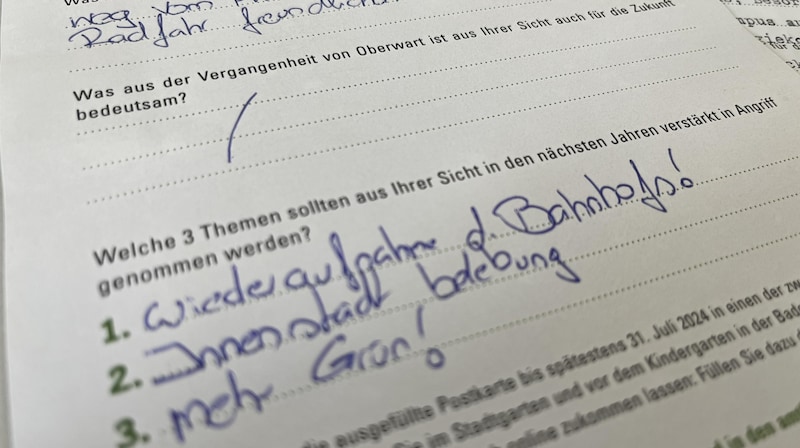 weg, vom
Radfahr freundlich
Was aus der Vergangenheit von Oberwart ist aus Ihrer Sicht auch für die Zukunft
bedeutsam?
/
Welche 3 Themen sollten aus Ihrer Sicht in den nächsten Jahren verstärkt in Angriff
genommen werden?
1. Wiederaufgahme d. Bahnhofs!
2. Innenstadt belebung
3. mehr Grün!
die ausgefüllte Postkarte bis spätestens 31. Juli 2024 in einen der
im Stadtgarten und vor dem Kindergarten in der
online zukommen lassen: Füllen Sie dazu